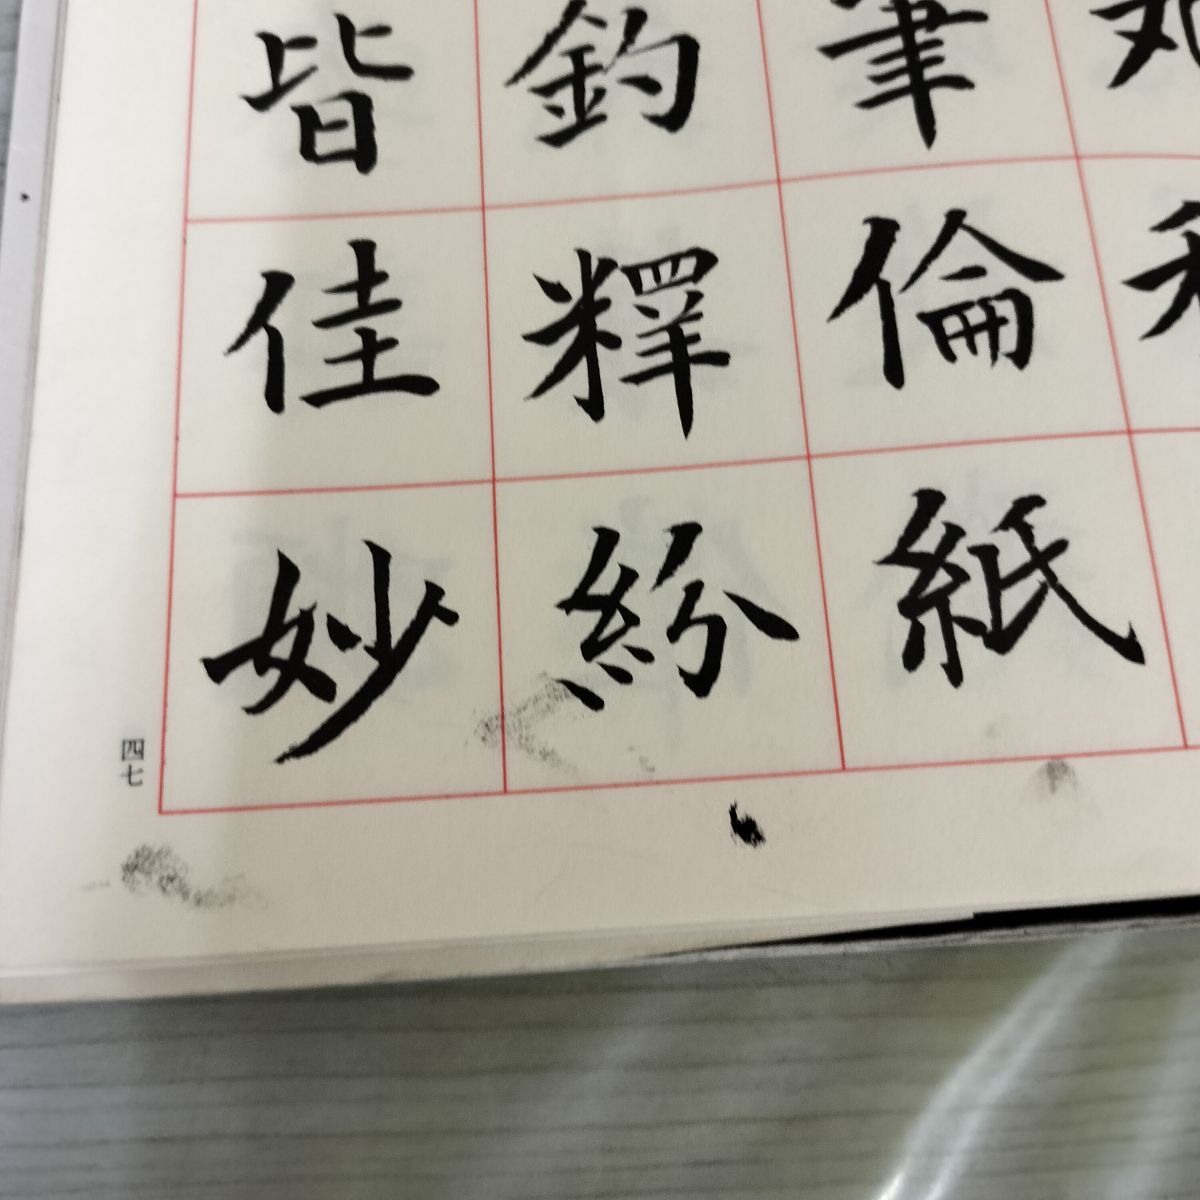 筆倫紙
釣釋紛
皆佳妙
四七